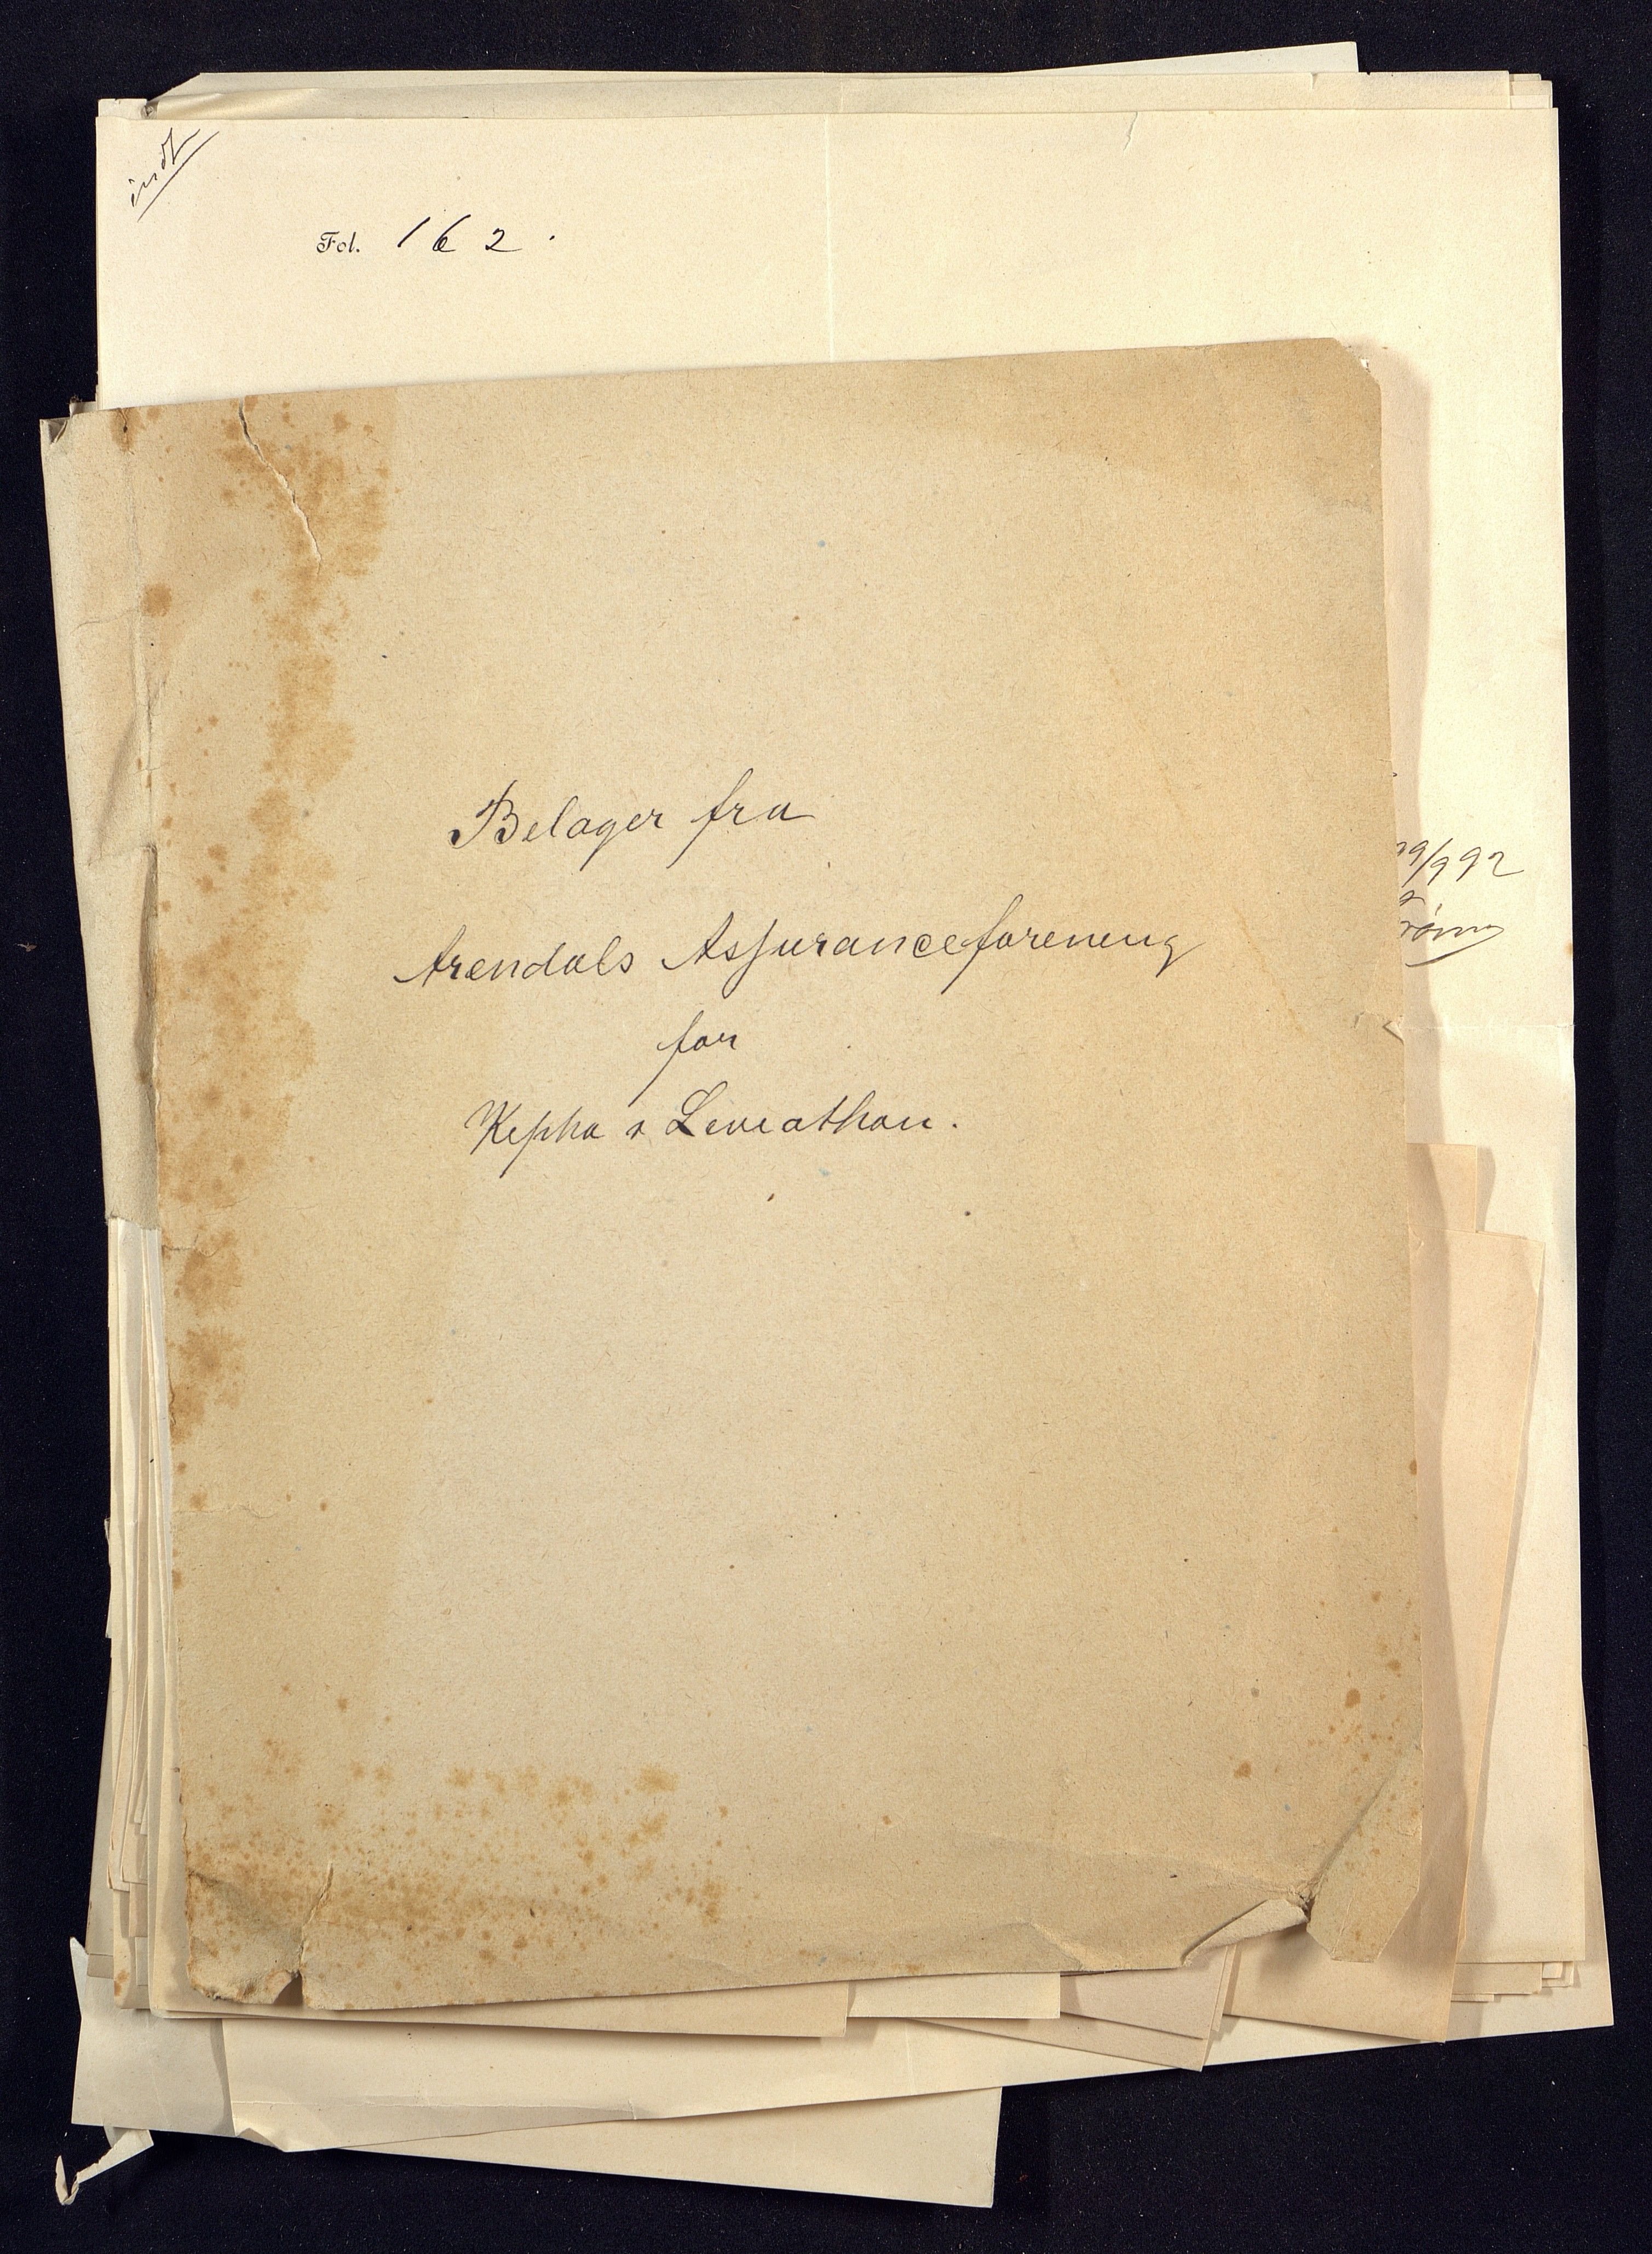 indt
Fol. 162.
Belager fra
Arendals Assuranceforening
for
Kepha & Leviathan.
29/9 92